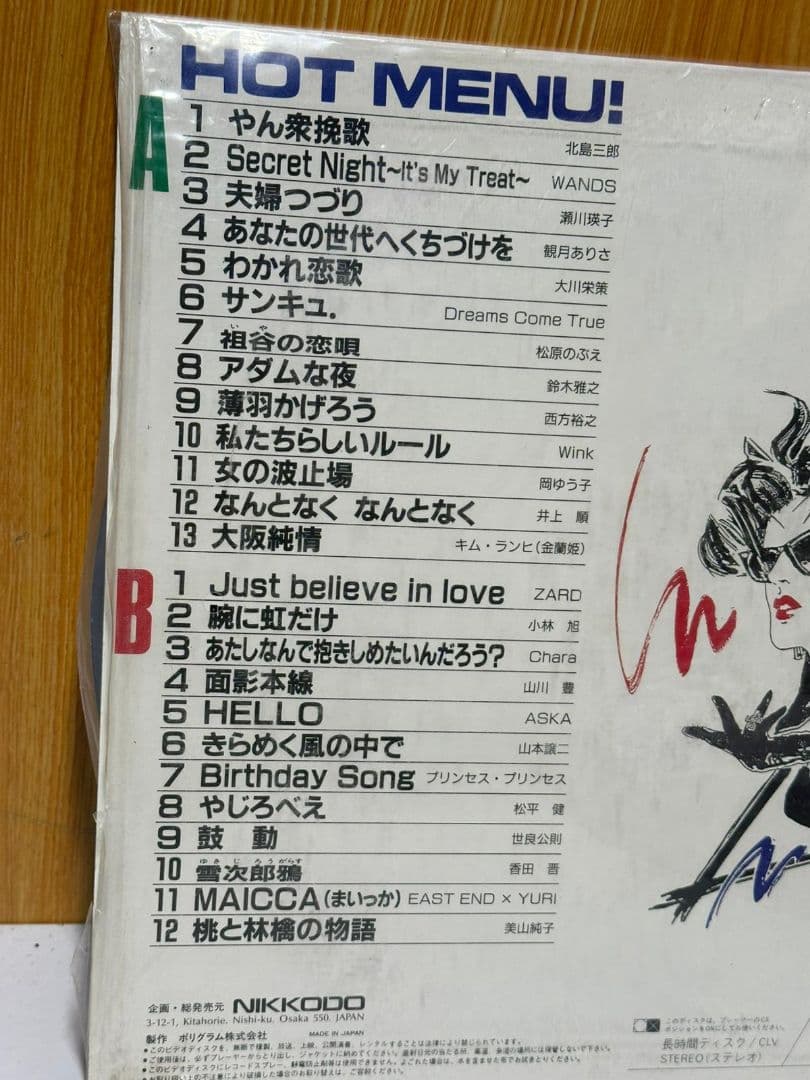 HOT MENU!
A
1 やん衆挽歌 北島三郎
2 Secret Night~It's My Treat~ WANDS
3 夫婦つづり 瀬川瑛子
4 あなたの世代へくちづけを 観月ありさ
5 わかれ恋歌 大川栄策
6 サンキュ. Dreams Come True
いや
7 祖谷の恋唄 松原のぶえ
8 アダムな夜 鈴木雅之
9 薄羽かげろう 西方裕之
10 私たちらしいルール Wink
11 女の波止場 岡ゆう子
12 なんとなく なんとなく 井上 順
13 大阪純情 キム・ランヒ(金蘭姫)
B
1 Just believe in love ZARD
2 腕に虹だけ 小林 旭
3 あたしなんで抱きしめたいんだろう? Chara
4 面影本線 山川 豊
5 HELLO ASKA
6 きらめく風の中で 山本譲二
7 Birthday Song プリンセス・プリンセス
8 やじろべえ 松平 健
9 鼓 動 世良公則
ゆきじろうがらす
10 雪次郎鴉 香田 晋
11 MAICCA(まいっか) EAST END × YURI
12 桃と林檎の物語 美山純子
企画・総発売元 NIKKODO
3-12-1, Kitahorie, Nishi-ku, Osaka 550, JAPAN
製作 ポリグラム株式会社 MADE IN JAPAN
●このビデオディスクを、無断で複製、放送、上映、公開演奏、レンタルすることは法律により禁じられています。
このディスクは、プレーヤーのCX
ポジションをONにしてお使いください。
長時間ディスク/CLV
STEREO(ステレオ)